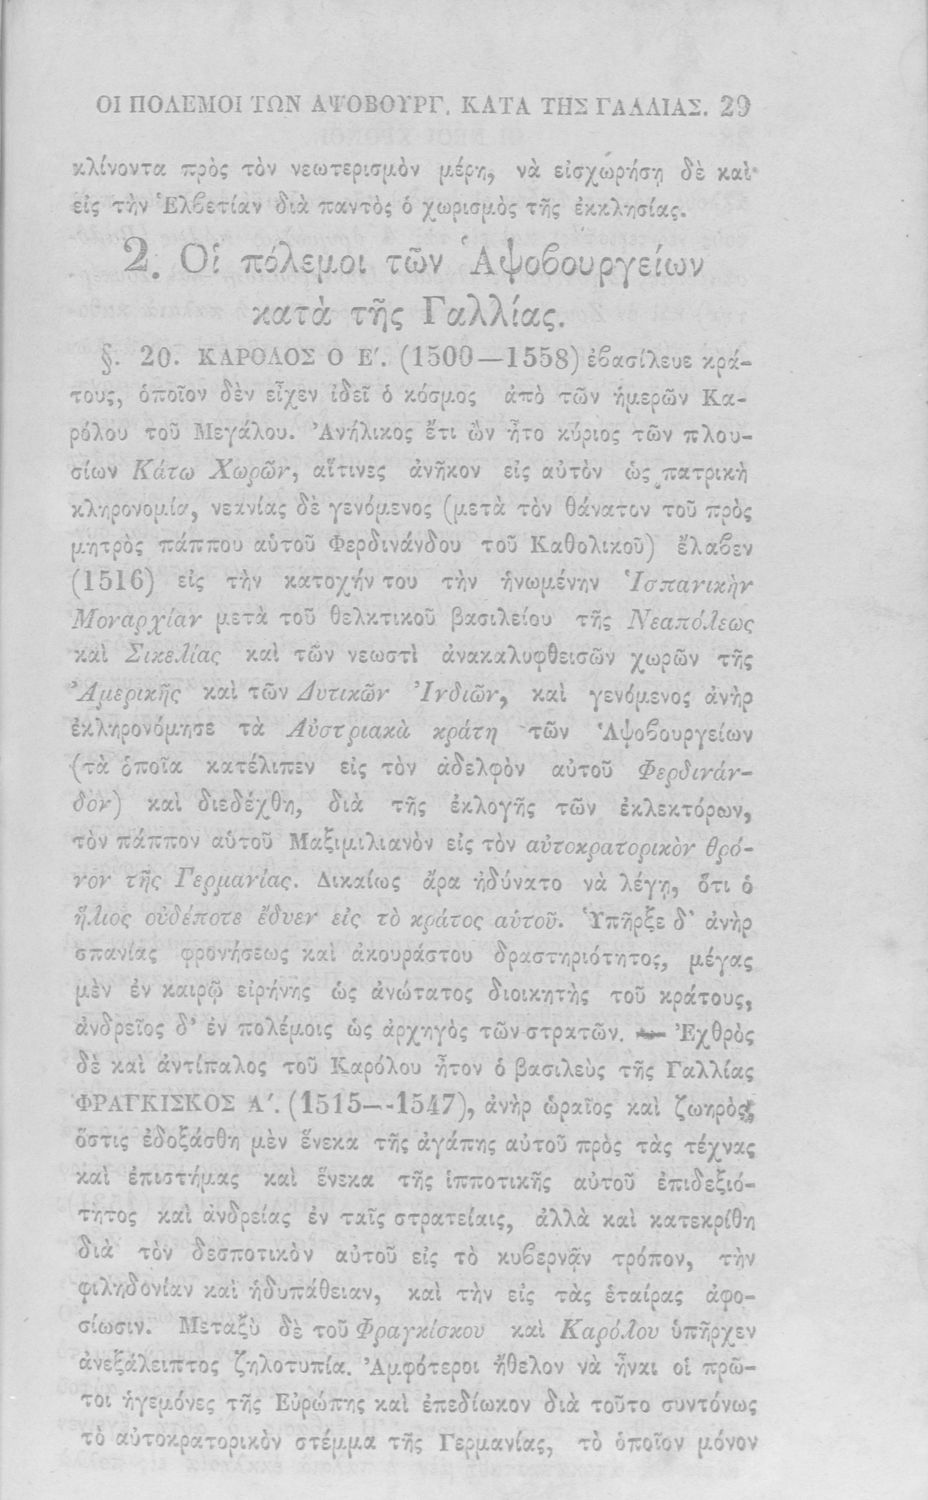 ΟΙ ΠΟΛΕΜΟΙ ΤΩΝ ΑΨΟΒΟΥΡΓ. ΚΑΤΑ ΤΗΣ ΓΑΛΛΙΑΣ. 29
κλίνοντα πρὸς τὸν νεωτερισμὸν μέρη, νὰ εἰσχωρήσῃ δὲ καὶ
εἰς τὴν Ἑλβετίαν διὰ παντὸς ὁ χωρισμὸς τῆς ἐκκλησίας.
2. Οἱ πόλεμοι τῶν Ἀψοβουργείων
κατὰ τῆς Γαλλίας.
§. 20. ΚΑΡΟΛΟΣ Ο Ε΄. (1500—1558) ἐβασίλευε κρά-
τους, ὁποῖον δὲν εἶχεν ἰδεῖ ὁ κόσμος ἀπὸ τῶν ἡμερῶν Κα-
ρόλου τοῦ Μεγάλου. Ἀνήλικος ἔτι ὢν ἦτο κύριος τῶν πλου-
σίων Κάτω Χωρῶν, αἵτινες ἀνῆκον εἰς αὐτὸν ὡς πατρικὴ
κληρονομία, νεανίας δὲ γενόμενος (μετὰ τὸν θάνατον τοῦ πρὸς
μητρὸς πάππου αὑτοῦ Φερδινάνδου τοῦ Καθολικοῦ) ἔλαβεν
(1516) εἰς τὴν κατοχήν του τὴν ἡνωμένην Ἱσπανικὴν
Μοναρχίαν μετὰ τοῦ θελκτικοῦ βασιλείου τῆς Νεαπόλεως
καὶ Σικελίας καὶ τῶν νεωστὶ ἀνακαλυφθεισῶν χωρῶν τῆς
Ἀμερικῆς καὶ τῶν Δυτικῶν Ἰνδιῶν, καὶ γενόμενος ἀνὴρ
ἐκληρονόμησε τὰ Αὐστριακὰ κράτη τῶν Ἁψοβουργείων
(τὰ ὁποῖα κατέλιπεν εἰς τὸν ἀδελφὸν αὐτοῦ Φερδινάν-
δον) καὶ διεδέχθη, διὰ τῆς ἐκλογῆς τῶν ἐκλεκτόρων,
τὸν πάππον αὑτοῦ Μαξιμιλιανὸν εἰς τὸν αὐτοκρατορικὸν θρό-
νον τῆς Γερμανίας. Δικαίως ἄρα ἠδύνατο νὰ λέγῃ, ὅτι ὁ
ἥλιος οὐδέποτε ἔδυεν εἰς τὸ κράτος αὑτοῦ. Ὑπῆρξε δ' ἀνὴρ
σπανίας φρονήσεως καὶ ἀκουράστου δραστηριότητος, μέγας
μὲν ἐν καιρῷ εἰρήνης ὡς ἀνώτατος διοικητὴς τοῦ κράτους,
ἀνδρεῖος δ' ἐν πολέμοις ὡς ἀρχηγὸς τῶν στρατῶν. — Ἐχθρὸς
δὲ καὶ ἀντίπαλος τοῦ Καρόλου ἦτον ὁ βασιλεὺς τῆς Γαλλίας
ΦΡΑΓΚΙΣΚΟΣ Α΄. (1515--1547), ἀνὴρ ὡραῖος καὶ ζωηρὸς,
ὅστις ἐδοξάσθη μὲν ἕνεκα τῆς ἀγάπης αὐτοῦ πρὸς τὰς τέχνας
καὶ ἐπιστήμας καὶ ἕνεκα τῆς ἱπποτικῆς αὐτοῦ ἐπιδεξιό-
τητος καὶ ἀνδρείας ἐν ταῖς στρατείαις, ἀλλὰ καὶ κατεκρίθη
διὰ τὸν δεσποτικὸν αὐτοῦ εἰς τὸ κυβερνᾷν τρόπον, τὴν
φιληδονίαν καὶ ἡδυπάθειαν, καὶ τὴν εἰς τὰς ἑταίρας ἀφο-
σίωσιν. Μεταξὺ δὲ τοῦ Φραγκίσκου καὶ Καρόλου ὑπῆρχεν
ἀνεξάλειπτος ζηλοτυπία. Ἀμφότεροι ἤθελον νὰ ἦναι οἱ πρῶ-
τοι ἡγεμόνες τῆς Εὐρώπης καὶ ἐπεδίωκον διὰ τοῦτο συντόνως
τὸ αὐτοκρατορικὸν στέμμα τῆς Γερμανίας, τὸ ὁποῖον μόνον